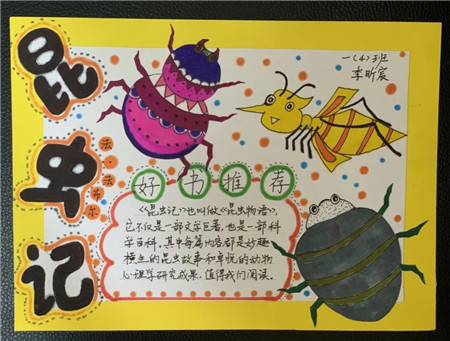 昆虫记
法·法布尔
一(4)班
李昕宸
好书推荐
《昆虫记》也叫做《昆虫物语》,
它不仅是一部文学巨著,也是一部科
学百科。其中每篇内容都是妙趣
横生的昆虫故事和卓悦的动物
心理学研究成果,值得我们阅读。